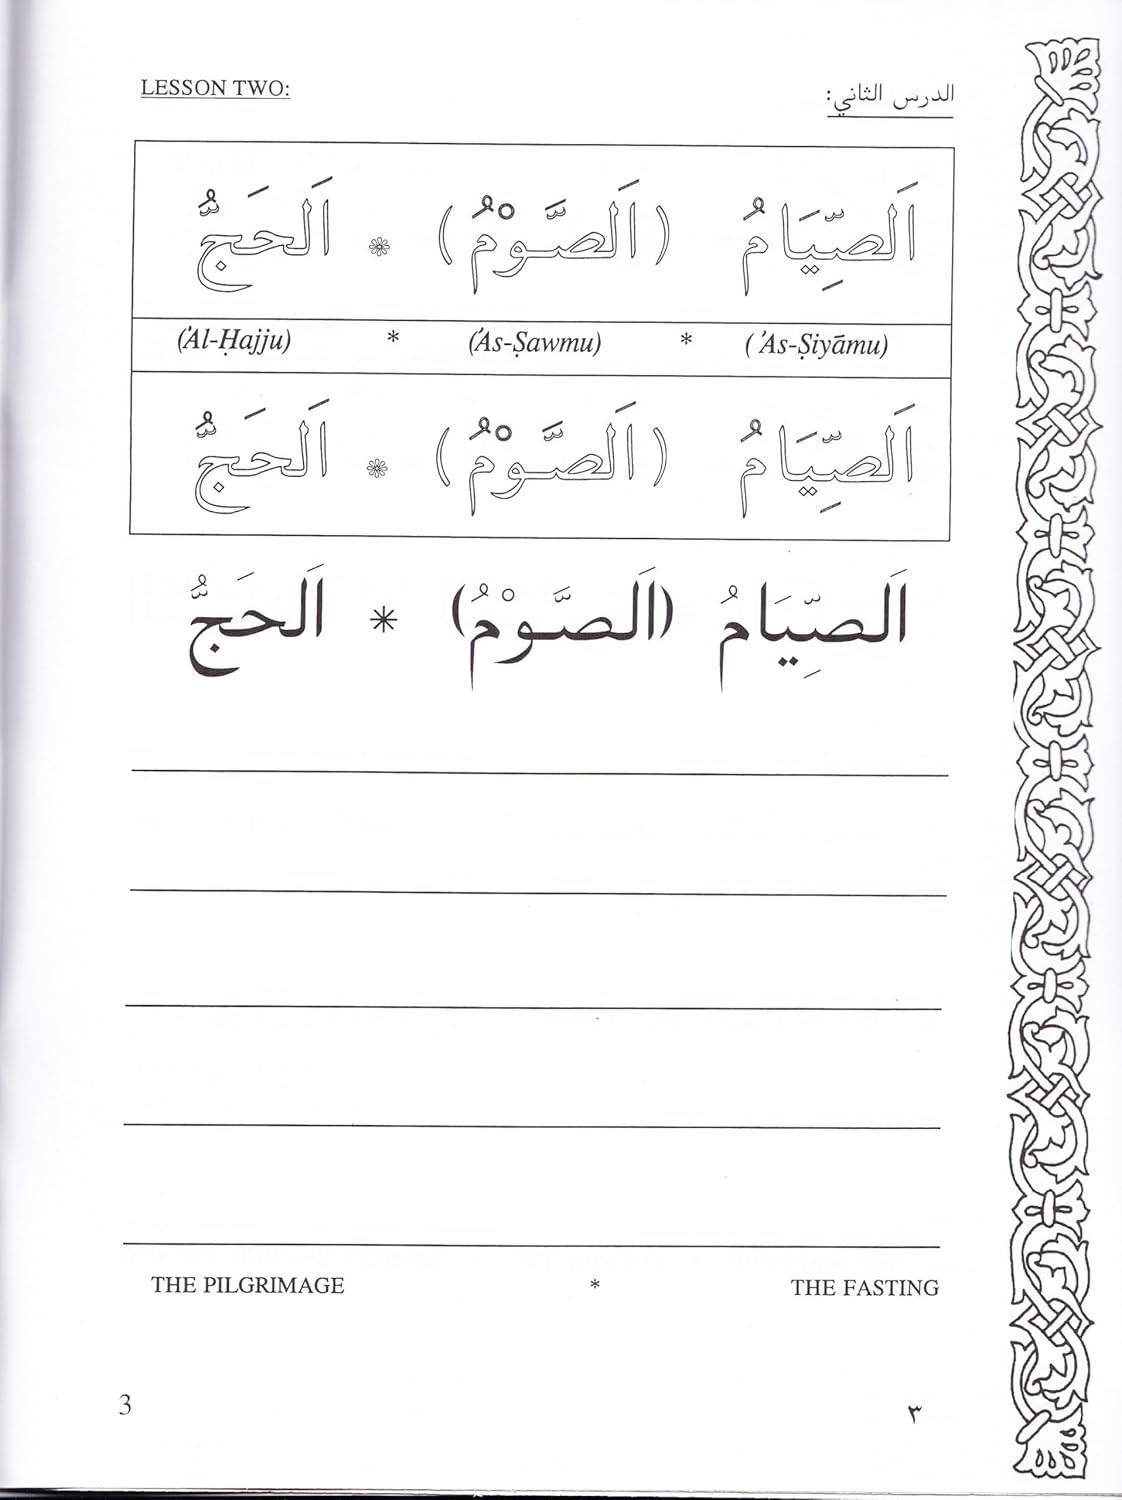 LESSON TWO: الدرس الثاني:
اَلصِّيَامُ (اَلصَّوْمُ) * اَلحَجُّ
('Al-Ḥajju) * ('As-Ṣawmu) * ('As-Ṣiyāmu)
اَلصِّيَامُ (اَلصَّوْمُ) * اَلحَجُّ
اَلصِّيَامُ (اَلصَّوْمُ) * اَلحَجُّ
THE PILGRIMAGE * THE FASTING
3 ٣